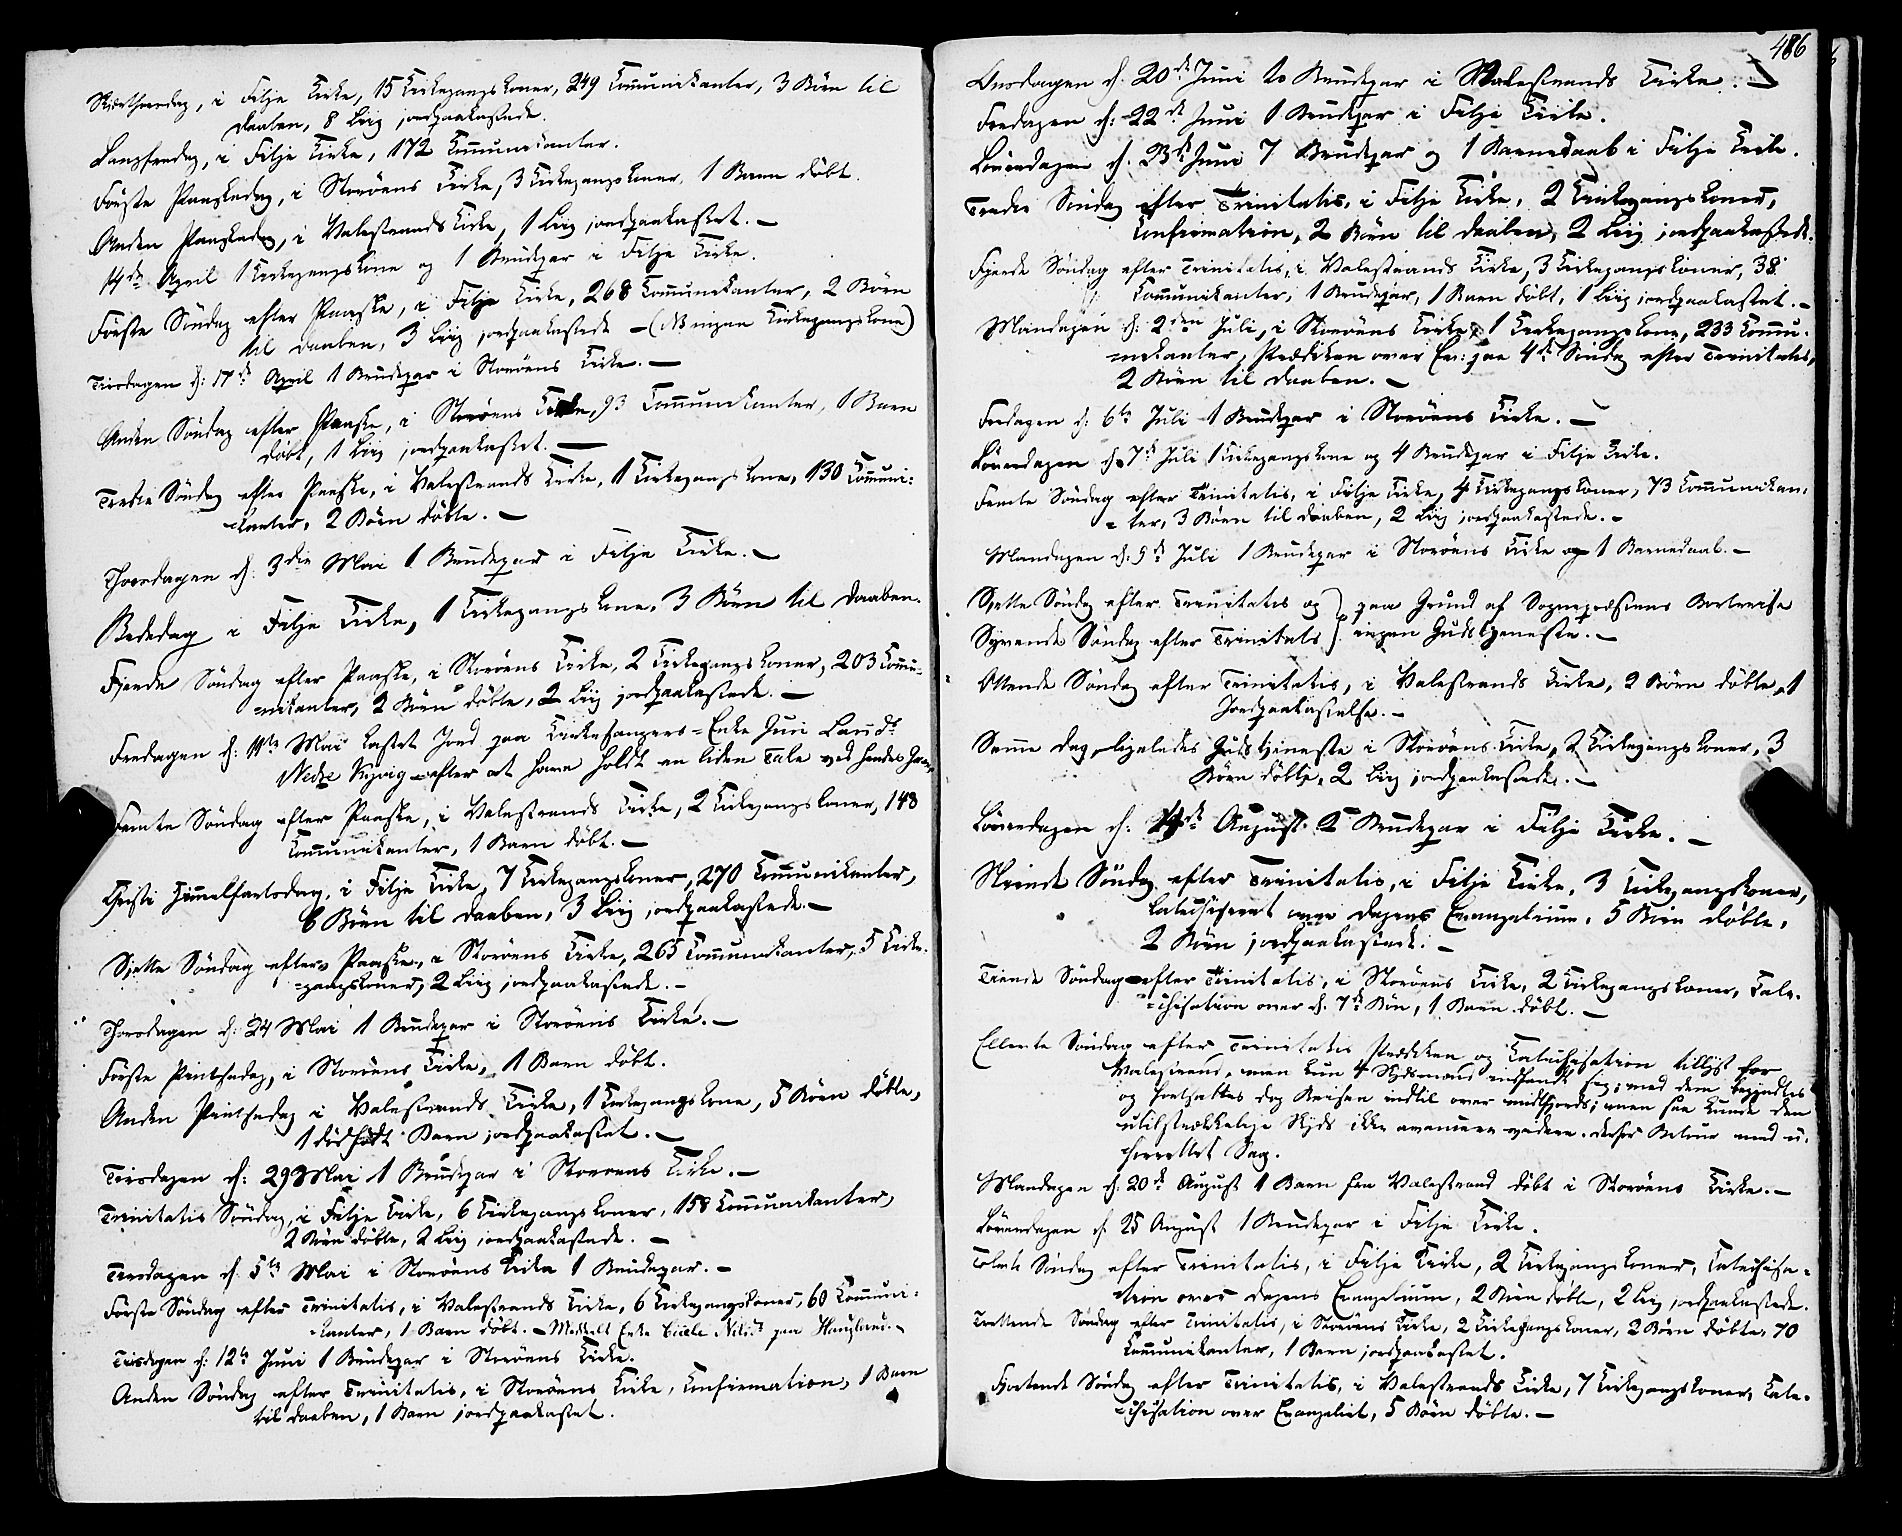 Skjærthorsdag, i Fitje Kirke, 15 Kirkegangskoner, 249 Communikanter, 3 Börn til
Daaben, 8 Liig jordpaakastede.
Langfredag, i Fitje Kirke, 172 Communikanter.
Förste Paaskedag, i Storöens Kirke, 3 Kirkegangskoner, 1 Barn döbt.
Anden Paaskedag, i Valestrands Kirke, 1 Liig jordpaakastet. —
14de April 1 Kirkegangskone og 1 Brudepar i Fitje Kirke.
Förste Söndag efter Paaske, i Fitje Kirke, 268 Communikanter, 2 Börn
til Daaben, 3 Liig jordpaakastede — (NB ingen Kirkegangskone)
Tirsdagen d: 17de April 1 Brudepar i Storöens Kirke. —
Anden Söndag efter Paaske, i Storöens Kirke, 93 Communikanter, 1 Barn
döbt, 1 Liig jordpaakastet. —
Tredie Söndag efter Paaske, i Valestrands Kirke, 1 Kirkegangskone, 130 Communi-
=kanter, 2 Börn döbte. —
Thorsdagen d: 3die Mai 1 Brudepar i Fitje Kirke. —
Bededag i Fitje Kirke, 1 Kirkegangskone, 3 Börn til Daaben.
Fjerde Söndag efter Paaske, i Storöens Kirke, 2 Kirkegangskoner, 203 Commu-
=nikanter, 2 Börn döbte, 2 Liig jordpaakastede. —
Fredagen d: 11te Mai kastet Jord paa Kirkesangers-Enke Juri Larsdr
Nedre efter at have holdt en liden Tale ved hendes
Femte Söndag efter Paaske, i Valestrands Kirke, 2 Kirkegangskoner, 148
Communikanter, 1 Barn döbt. —
Christi Himmelfartsdag, i Fitje Kirke, 7 Kirkegangskoner, 270 Communikanter,
6 Börn til Daaben, 3 Liig jordpaakastede. —
Sjette Söndag efter Paaske, i Storöens Kirke, 265 Communikanter, 5 Kirke-
=gangskoner, 2 Liig jordpaakastede. —
Thorsdagen d: 24 Mai 1 Brudepar i Storöens Kirke. —
Förste Pintsedag, i Storöens Kirke, 1 Barn döbt.
Anden Pintsedag i Valestrands Kirke, 1 Kirkegangskone, 5 Börn döbte,
1 dödfödt Barn jordpaakastet. —
Tirsdagen d: 29 Mai 1 Brudepar i Storöens Kirke. —
Trinitatis Söndag, i Fitje Kirke, 6 Kirkegangskoner, 158 Communikanter,
2 Börn döbte, 2 Liig jordpaakastede. —
Tirsdagen d. 5te Mai i Storöens Kirke 1 Brudepar. —
Förste Söndag efter Trinitatis, i Valestrands Kirke, 6 Kirkegangskoner, 60 Communi-
=kanter, 1 Barn döbt. — Enke paa
Tirsdagen d: 12te Juni 1 Brudepar i Storöens Kirke.
Anden Söndag efter Trinitatis, i Storöens Kirke, Confirmation, 1 Barn
til Daaben, 1 Barn jordpaakastet.
486
Onsdagen d: 20de Juni to Brudepar i Walestrands Kirke. —
Fredagen d: 22de Juni 1 Brudepar i Fitje Kirke.
Löverdagen d. 23de Juni 7 Brudepar og 1 Barnedaab i Fitje Kirke.
Tredie Söndag efter Trinitatis, i Fitje Kirke, 2 Kirkegangskoner,
Confirmation, 2 Börn til Daaben, 2 Liig jordpaakastede.
Fjerde Söndag efter Trinitatis, i Valestrands Kirke, 3 Kirkegangskoner, 38
Communikanter, 1 Brudepar, 1 Barn döbt, 1 Liig jordpaakastet. —
Mandagen d: 2den Juli, i Storöens Kirke, 1 Kirkegangskone, 233 Commu-
=nikanter, Prædiken over Ev: paa 4de Söndag efter Trinitatis,
2 Börn til Daaben. —
Fredagen d: 6te Juli 1 Brudepar i Storöens Kirke. —
Löverdagen d. 7de Juli 1 Kirkegangskone og 4 Brudepar i Fitje Kirke.
Femte Söndag efter Trinitatis, i Fitje Kirke, 4 Kirkegangskoner, 73 Communikan-
=ter, 3 Börn til Daaben, 2 Liig jordpaakastede. —
Mandagen d: 9de Juli 1 Brudepar i Storöens Kirke og 1 Barnedaab. —
Sjette Söndag efter Trinitatis og } paa Grund af Sognepræstens Bortreise
Syvende Söndag efter Trinitatis } ingen Gudstjeneste. —
Ottende Söndag efter Trinitatis, i Valestrands Kirke, 2 Börn döbte, 1
Jordpaakastelse. —
Samme Dag, ligeledes Gudstjeneste i Storöens Kirke, 2 Kirkegangskoner, 3
Börn döbte, 2 Liig jordpaakastede. —
Löverdagen d: 4de August 2 Brudepar i Fitje Kirke. —
Niende Söndag efter Trinitatis, i Fitje Kirke, 3 Kirkegangskoner,
Catechiseret over Dagens Evangelium, 5 Börn döbte,
2 Börn jordpaakastede. —
Tiende Söndag efter Trinitatis, i Storöens Kirke, 2 Kirkegangskoner, Cate-
=chisation over d: 7de Bön, 1 Barn döbt. —
Ellevte Söndag efter Trinitatis Prædiken og Catechisation tillyst for
Valestrand, men kun 4 Skydsmænd indfandt sig; med dem begyndtes
og fortsattes dog Reisen indtil over midtfjords; men saa kunde den
utilstrækkelige Skyds ikke avancere videre. derfor Retour med u-
forrettet Sag.
Mandagen d: 20de August 1 Barn fra Valestrand döbt i Storöens Kirke. —
Löverdagen d. 25 August 1 Brudepar i Fitje Kirke.
Tolvte Söndag efter Trinitatis, i Fitje Kirke, 2 Kirkegangskoner, Catechisa-
tion over Dagens Evangelium, 2 Börn döbte, 2 Liig jordpaakastede.
Trettende Söndag efter Trinitatis, i Storöens Kirke, 2 Kirkegangskoner, 2 Börn döbte, 70
Communikanter, 1 Barn jordpaakastet.
Fjortende Söndag efter Trinitatis, i Valestrands Kirke, 7 Kirkegangskoner, Cate-
=chisation over Evangeliet, 5 Börn döbte. —